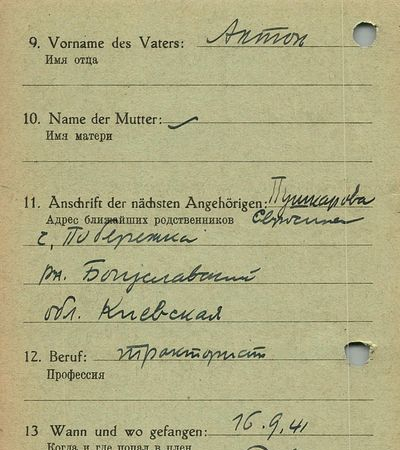 9. Vorname des Vaters: Антон
Имя отца
10. Name der Mutter:
Имя матери
11. Anschrift der nächsten Angehörigen: Пушкарова
Адрес ближайших родственников
с. Побережка
рн. Богуславский
обл. Киевская
12. Beruf: тракторист
Профессия
13 Wann und wo gefangen: 16.9.41
Когда и где попал в плен